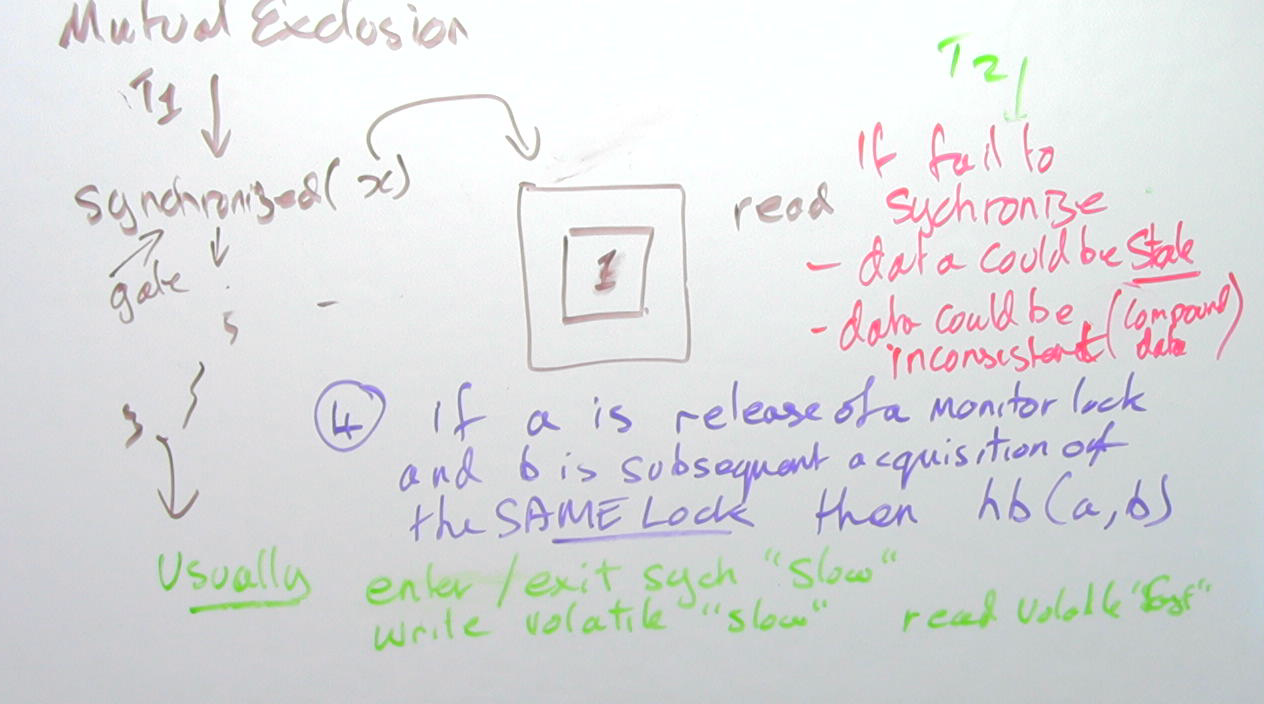 Mutual Exclusion
T1
synchronized(x)
gate
1
read
T2
If fail to
sychronize
- data could be Stale
- data could be (compound
inconsistent data)
4 If a is release of a monitor lock
and b is subsequent acquisition of
the SAME Lock then hb(a,b)
Usually enter/exit sych "slow"
write volatile "slow" read volatile "fast"